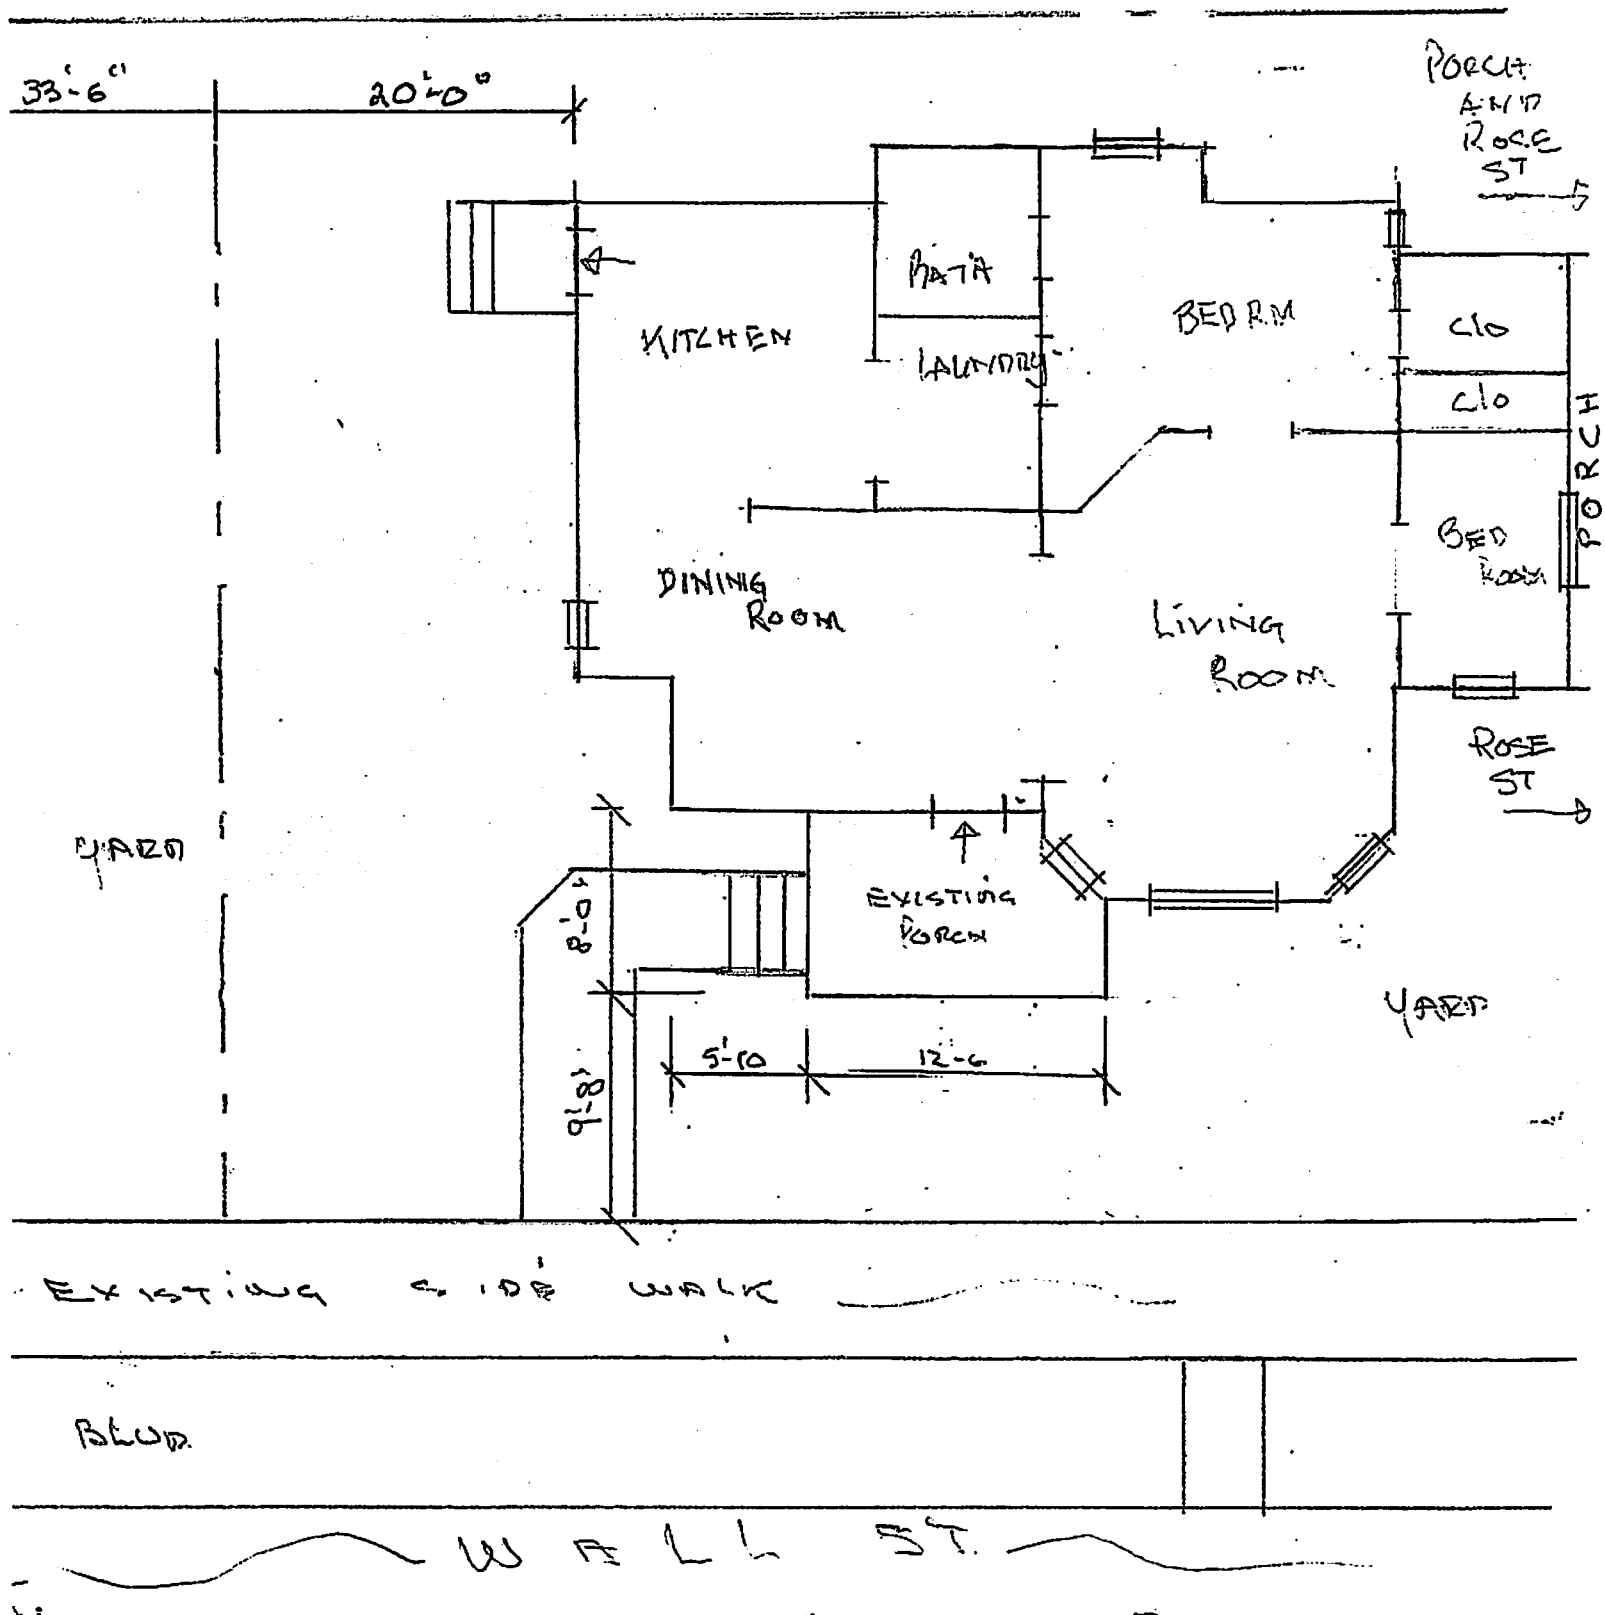 33'-6"
20'-0"
PORCH
AND
ROSE
ST
BATH
BED RM
KITCHEN
LAUNDRY
clo
clo
PORCH
BED
ROOM
DINING
ROOM
LIVING
ROOM
ROSE
ST
YARD
EXISTING
PORCH
8'-0"
YARD
5'-10
12-6
9'-8"
EXISTING SIDE WALK
BLVD.
WALL ST.